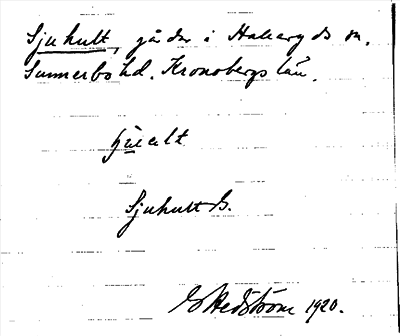 Sjuhult, gårdar i Hakaryds sn.
Sunnerbo hd. Kronobergs län.
Sjuhult G.
G Hedström 1920.